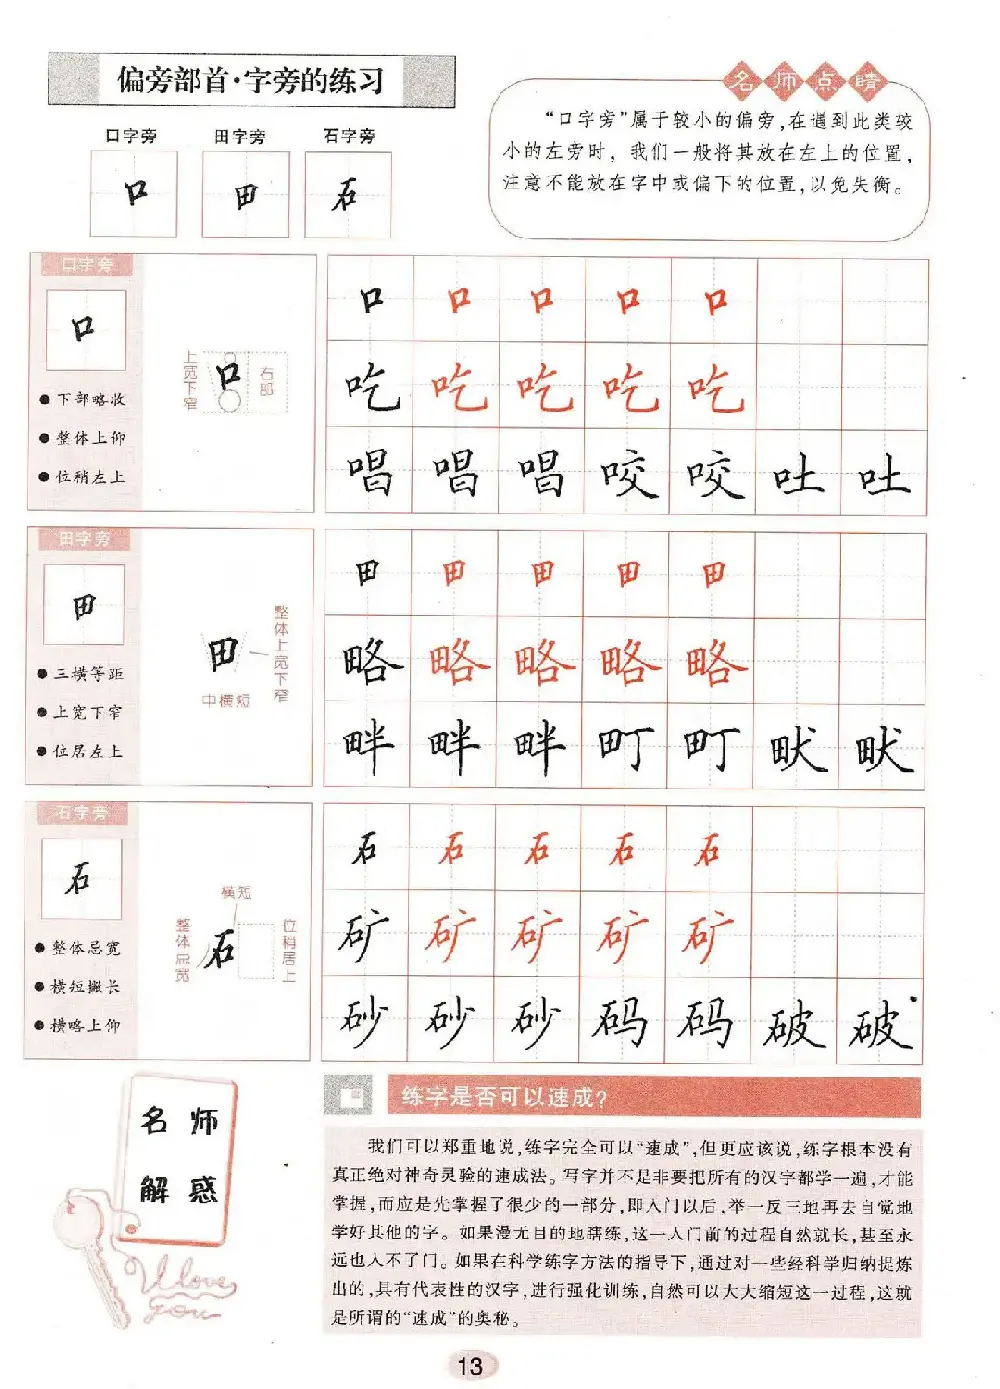 偏旁部首·字旁的练习
名师点睛
“口字旁”属于较小的偏旁,在遇到此类较
小的左旁时，我们一般将其放在左上的位置，
注意不能放在字中或偏下的位置,以免失衡。
口字旁 田字旁 石字旁
口 田 石
口字旁
口
下部略收
整体上仰
位稍左上
上宽下窄
口
右部
口 口 口 口 口
吃 吃 吃 吃 吃
唱 唱 唱 咬 咬 吐 吐
田字旁
田
三横等距
上宽下窄
位居左上
田
整体上宽下窄
中横短
田 田 田 田 田
略 略 略 略 略
畔 畔 畔 町 町 畎 畎
石字旁
石
整体忌宽
横短撇长
横略上仰
横短
整体忌宽
石
位稍居上
石 石 石 石 石
矿 矿 矿 矿 矿
砂 砂 砂 码 码 破 破
名师
解惑
I love
you
练字是否可以速成?
我们可以郑重地说,练字完全可以“速成”,但更应该说,练字根本没有
真正绝对神奇灵验的速成法。写字并不是非要把所有的汉字都学一遍,才能
掌握,而应是先掌握了很少的一部分,即入门以后,举一反三地再去自觉地
学好其他的字。如果漫无目的地瞎练,这一入门前的过程自然就长,甚至永
远也入不了门。如果在科学练字方法的指导下,通过对一些经科学归纳提炼
出的,具有代表性的汉字,进行强化训练,自然可以大大缩短这一过程,这就
是所谓的“速成”的奥秘。
13